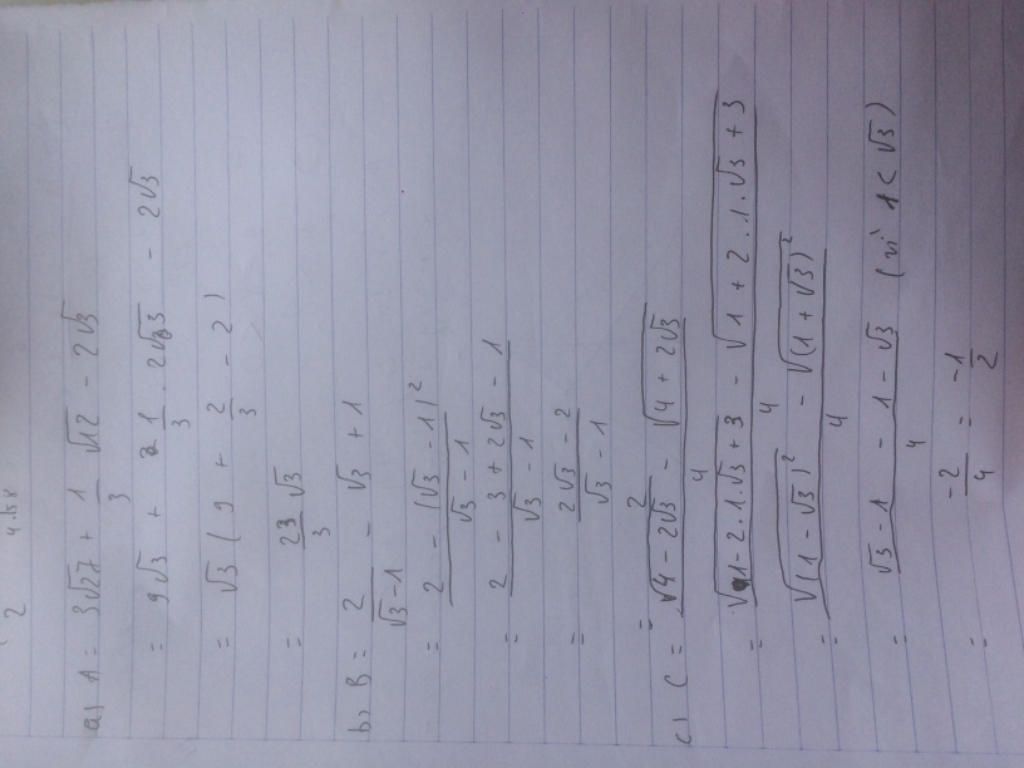 2 4.15x
a) A = 3√27 + 1/3 √12 - 2√3
= 9√3 + 1/3 . 2√3 - 2√3
= √3 (9 + 2/3 - 2)
= 23/3 √3
b) B = 2/(√3-1) - √3 + 1
= (2 - (√3 - 1)²)/(√3 - 1)
= (2 - 3 + 2√3 - 1)/(√3 - 1)
= (2√3 - 2)/(√3 - 1)
= 2
c) C = (√(4 - 2√3) - √(4 + 2√3))/4
= (√(1 - 2.1.√3 + 3) - √(1 + 2.1.√3 + 3))/4
= (√(1 - √3)² - √(1 + √3)²)/4
= (√3 - 1 - 1 - √3)/4 (vì 1 < √3)
= -2/4 = -1/2